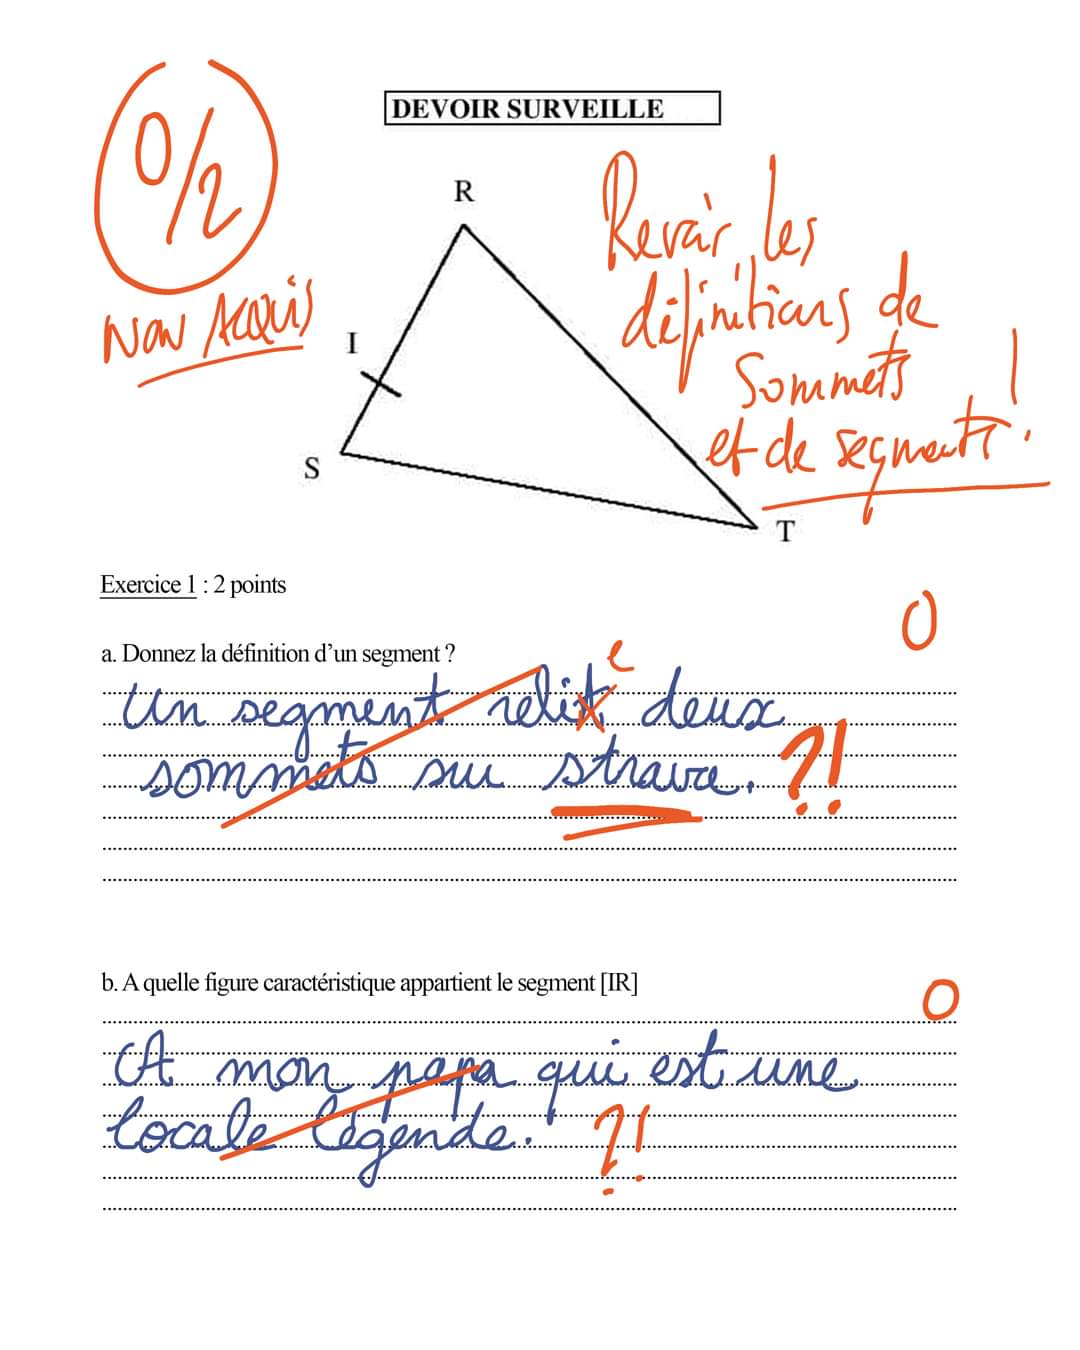 DEVOIR SURVEILLE
0/2
NON ACQUIS
Revoir les
définitions de
sommets
et de segments !
R
I
S
T
Exercice 1 : 2 points
0
a. Donnez la définition d’un segment ?
e
Un segment relit deux
sommets sur strava. ?!
b. A quelle figure caractéristique appartient le segment [IR]
0
A mon papa qui est une
locale légende. ?!